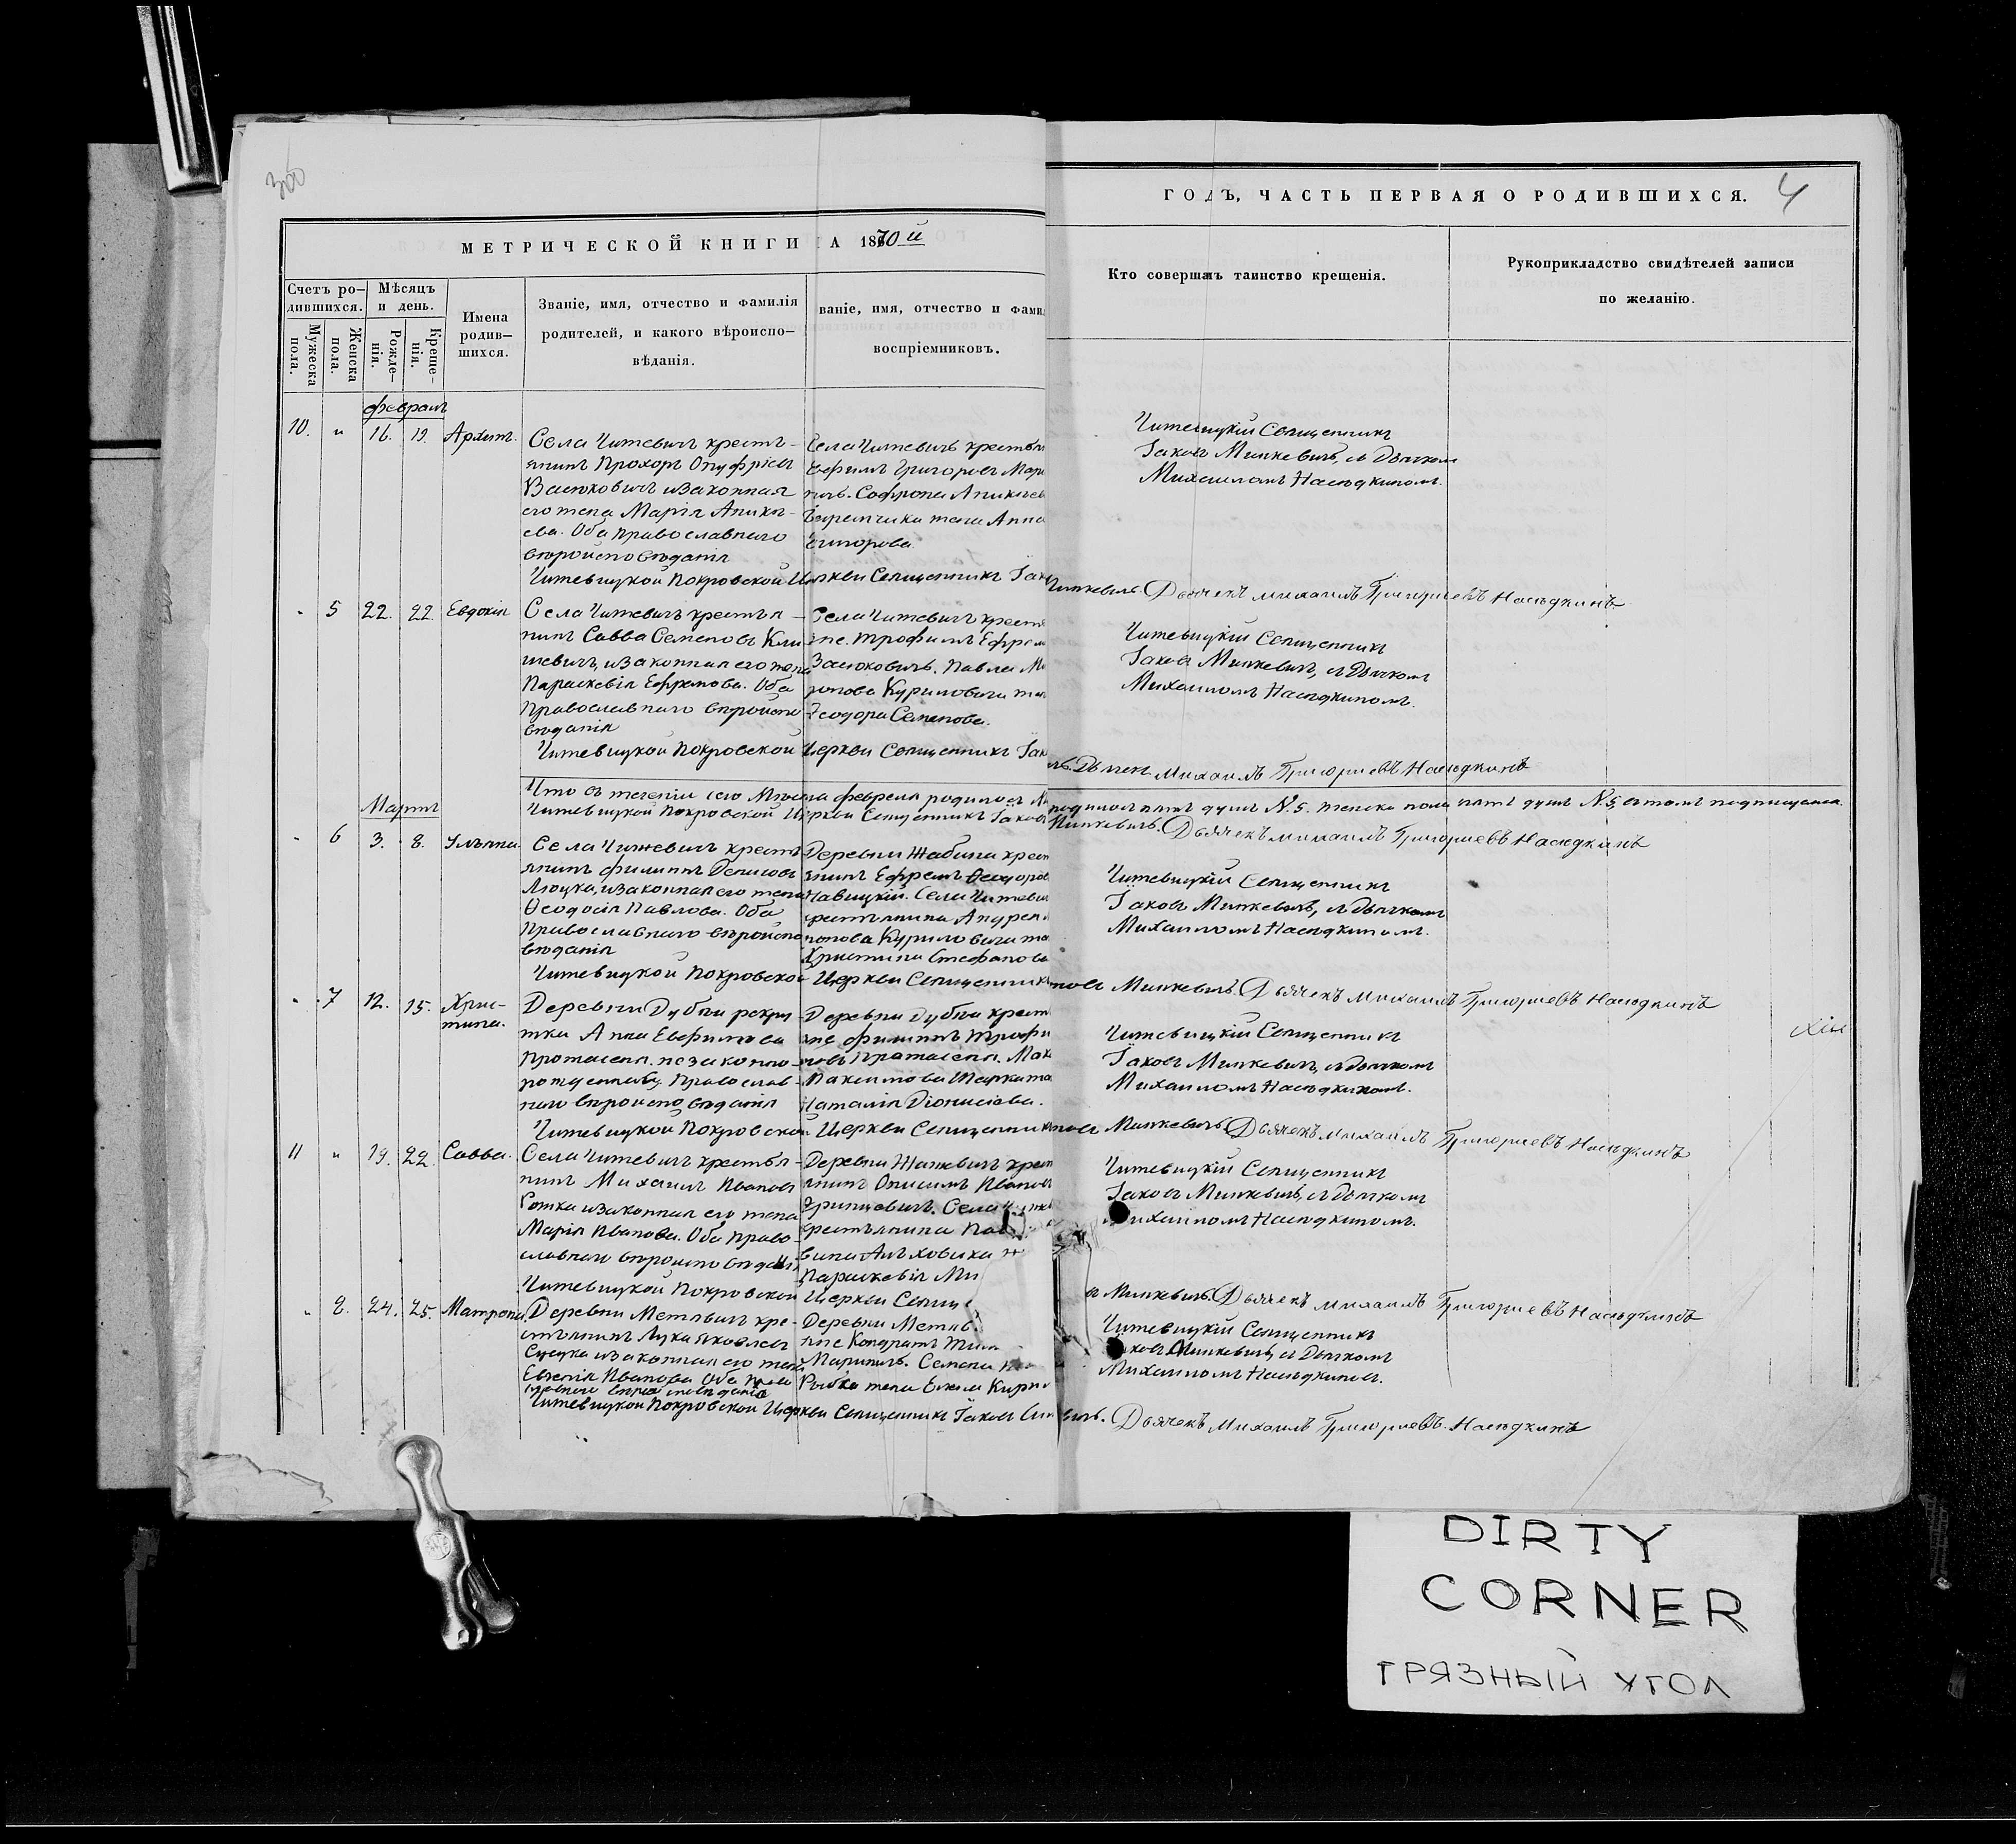 300
МЕТРИЧЕСКОЙ КНИГИ НА 1870 й
ГОДЪ, ЧАСТЬ ПЕРВАЯ О РОДИВШИХСЯ. 4
Счетъ ро-
дившихся.
Мужеска
пола.
Женска
пола.
Мѣсяцъ
и день.
Рожде-
нія.
Креще-
нія.
Имена
родив-
шихся.
Званіе, имя, отчество и фамилія
родителей, и какого вѣроиспо-
вѣданія.
ваніе, имя, отчество и фами
воспріемниковъ.
Кто совершалъ таинство крещенія.
Рукоприкладство свидѣтелей записи
по желанію.
февраль
10. " 16. 19. Архипъ.
Села Читевичъ кресть-
янинъ Прохоръ Онуфріевъ
Васюковичъ и законная
его жена Марія Аники-
ева. Оба православнаго
вѣроисповѣданія
Села Читевичъ крестья
Ефимъ Григоровъ
Софрона
жена Анна
Читевицкій Священникъ
Іаковъ Минкевичъ, съ Дьячком
Михаиломъ Насѣдкиномъ.
Читевицкой Покровской Церкви Священникъ Іак
Минкевичъ. Дьячекъ Михаилъ Григориевъ Насѣдкинъ
" 5 22. 22. Евдокія
Села Читевичъ крестья-
нинъ Савва Семеновъ Кли
шевичъ, и законная его жена
Параскевія Ефремова. Оба
православнаго вѣроиспо
вѣданія
Села Читевичъ крестья
не. Трофимъ Ефрем
Васюковичъ. Павла Ми
ронова Куриловича жен
Ѳеодора Семенова.
Читевицкій Священникъ
Іаковъ Минкевичъ, съ Дьячкомъ
Михаиломъ Насѣдкиномъ.
Читевицкой Покровской Церкви Священникъ Іак
Дьячекъ Михаилъ Григориевъ Насѣдкинъ
Что въ теченіи сего Мѣсяца февраля родилось
родилось пять душъ N. 5. женска пола пять душъ N. 5, въ томъ подпищемся.
Читевицкой Покровской Церкви Священникъ Іаковъ
Минкевичъ. Дьячекъ Михаилъ Григориевъ Насѣдкинъ
Мартъ
" 6 3. 8. Ульяна.
Села Читевичъ кресть
янинъ филиппъ Денисовъ
Люцко, и законная его жена
Ѳеодосія Павлова. Оба
православнаго вѣроиспо
вѣданія
Деревни Жабина крест
янинъ Ефремъ Ѳеодоров
Навицкій. Села Читевич
крестьянина Андрея
Куриловича
Христина Стефанова
Читевицкій Священникъ
Іаковъ Минкевичъ, съ дьячкомъ
Михаиломъ Насѣдкиномъ.
Читевицкой Покровской Церкви Священникъ
Минкевичъ. Дьячекъ Михаилъ Григориевъ Насѣдкинъ
" 7 12. 15. Хрис-
тина.
Деревни Дубни рекру-
тка Анна Евфимова
Протасеня. незаконно-
рожденнабу. Православ-
наго вѣроисповѣданія
Деревни Дубни крест
не филиппъ Трофи
мовъ Протасеня.
Максимова
Наталія Діонисіева.
Читевицкій Священникъ
Іаковъ Минкевичъ, съ дьячкомъ
Михаиломъ Насѣдкиномъ.
Читевицкой Покровской Церкви Священникъ
Минкевичъ. Дьячекъ Михаилъ Григориевъ Насѣдкинъ
11 " 19. 22. Савва.
Села Читевичъ крестья-
нинъ Михаилъ Ивановъ
Рожка и законная его жена
Марія Иванова. Оба право-
славнаго вѣроисповѣданія
Деревни крест
янинъ Онисимъ Ивановъ
Грицевичъ. Села
крестьянина
Параскевія Ми
Читевицкій Священникъ
Іаковъ Минкевичъ, съ дьячкомъ
Михаиломъ Насѣдкиномъ.
Читевицкой Покровской Церкви Священ
Минкевичъ. Дьячекъ Михаилъ Григориевъ Насѣдкинъ
" 8. 24. 25. Матрона.
Деревни Метявичъ кре-
стьянинъ Лука Яковлевъ
и законная его жена
Евгенія Иванова. Оба право
славнаго вѣроисповѣданія
Деревни Метяв
не Кондратъ
Семена
Рыбка жена Елена
Читевицкій Священникъ
Іаковъ Минкевичъ, съ Дьячкомъ
Михаиломъ Насѣдкиномъ.
Читевицкой Покровской Церкви Священникъ Іаковъ
Дьячекъ Михаилъ Григориевъ Насѣдкинъ
DIRTY
CORNER
ГРЯЗНЫЙ УГОЛ